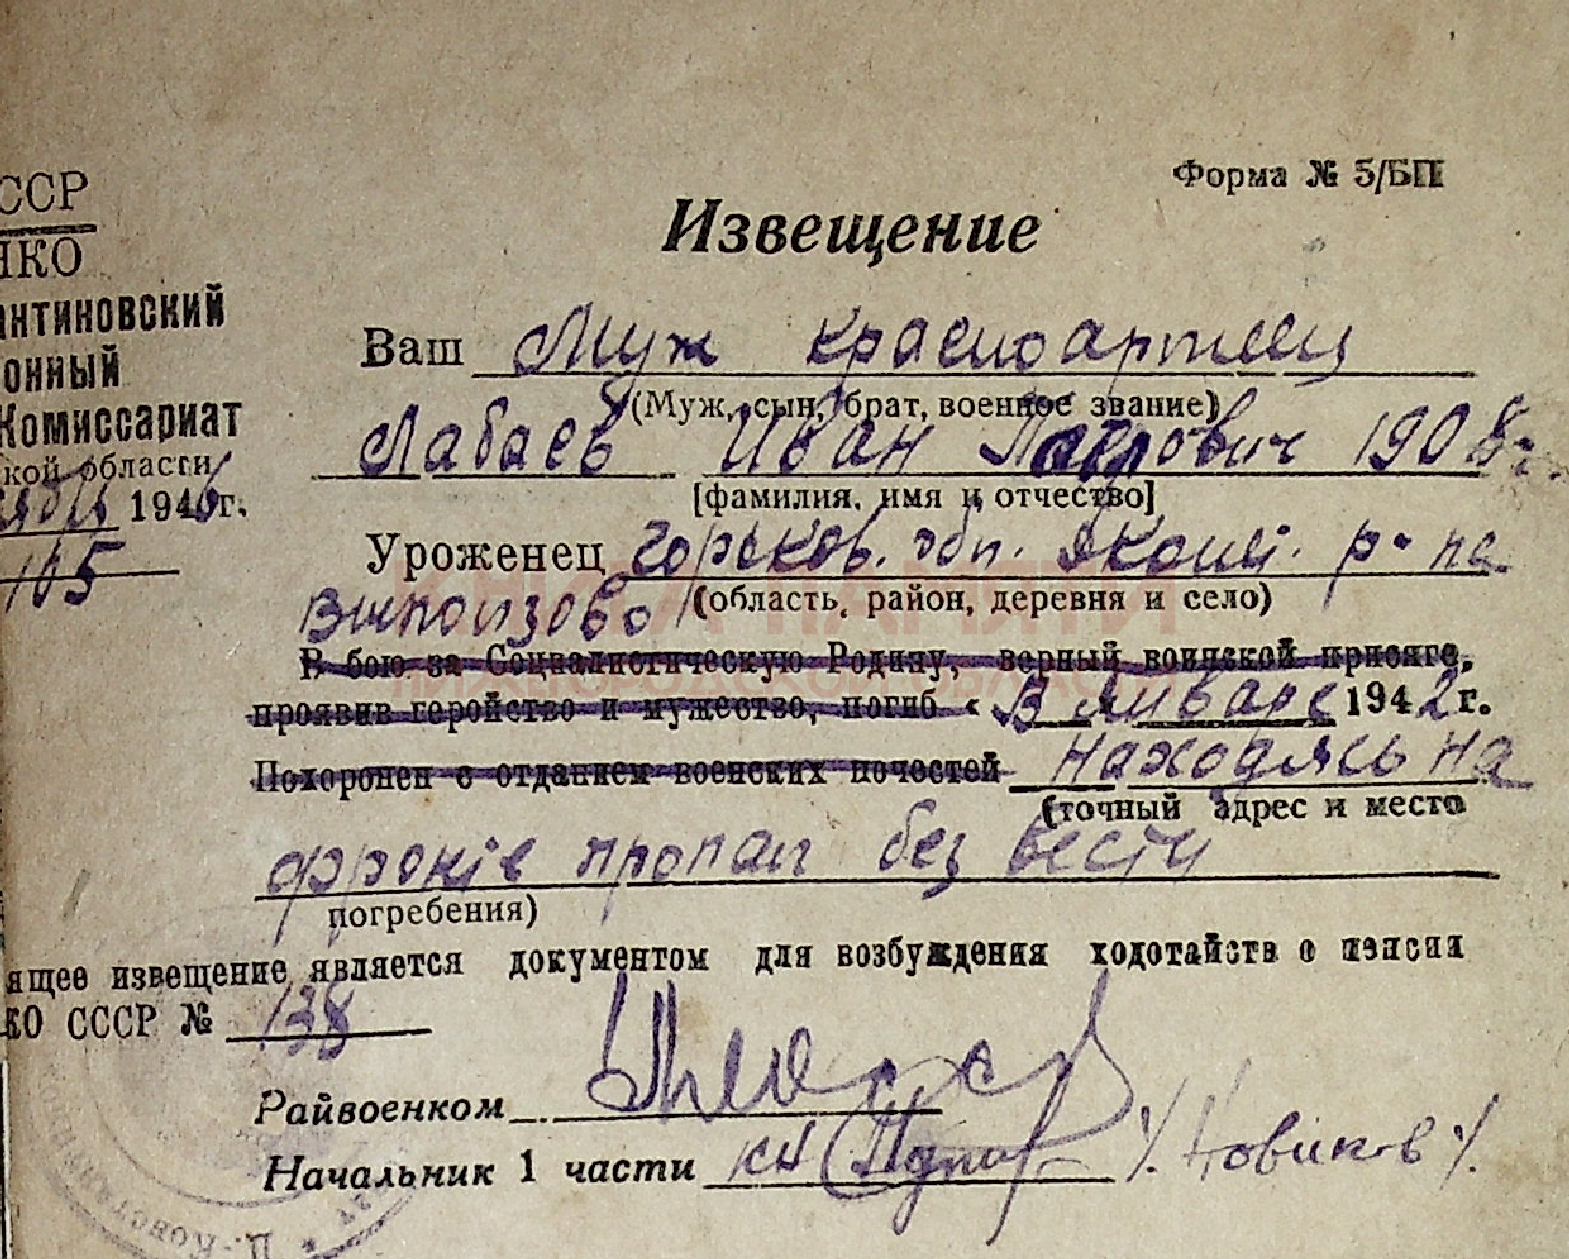 Форма № 5/БП
ССР
НКО
антиновский
онный
Комиссариат
кой области
1946 г.
105
Извещение
Ваш Муж красноармеец
(Муж, сын, брат, военное звание)
Лабаев Иван Павлович 1908 г.
[фамилия, имя и отчество]
Уроженец Горьков. обл. р-на
(область, район, деревня и село)
Выползово
В бою за Социалистическую Родину, верный воинской присяге,
проявив геройство и мужество, погиб « в январе 1942 г.
Похоронен с отданием военских почестей находясь на
(точный адрес и место
фронте пропал без вести
погребения)
ящее извещение является документом для возбуждения ходотайств о пэнсии
КО СССР № 138
Райвоенком
Начальник 1 части /Новиков/
КНИГА ПАМЯТИ
НИЖЕГОРОДСКОЙ ОБЛАСТИ